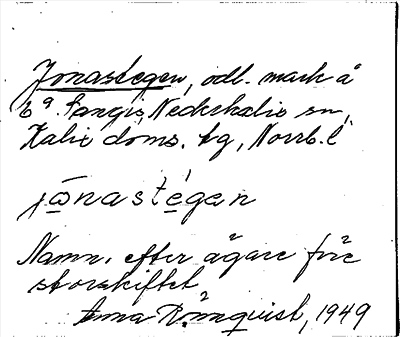 Jonastegen, odl. mark å
bq. Sangis, Nederkalix sn,
Kalix doms. tg, Norrb. l
jånastegan
Namn. efter ägare före
storskiftet
Anna Rönnquist, 1949